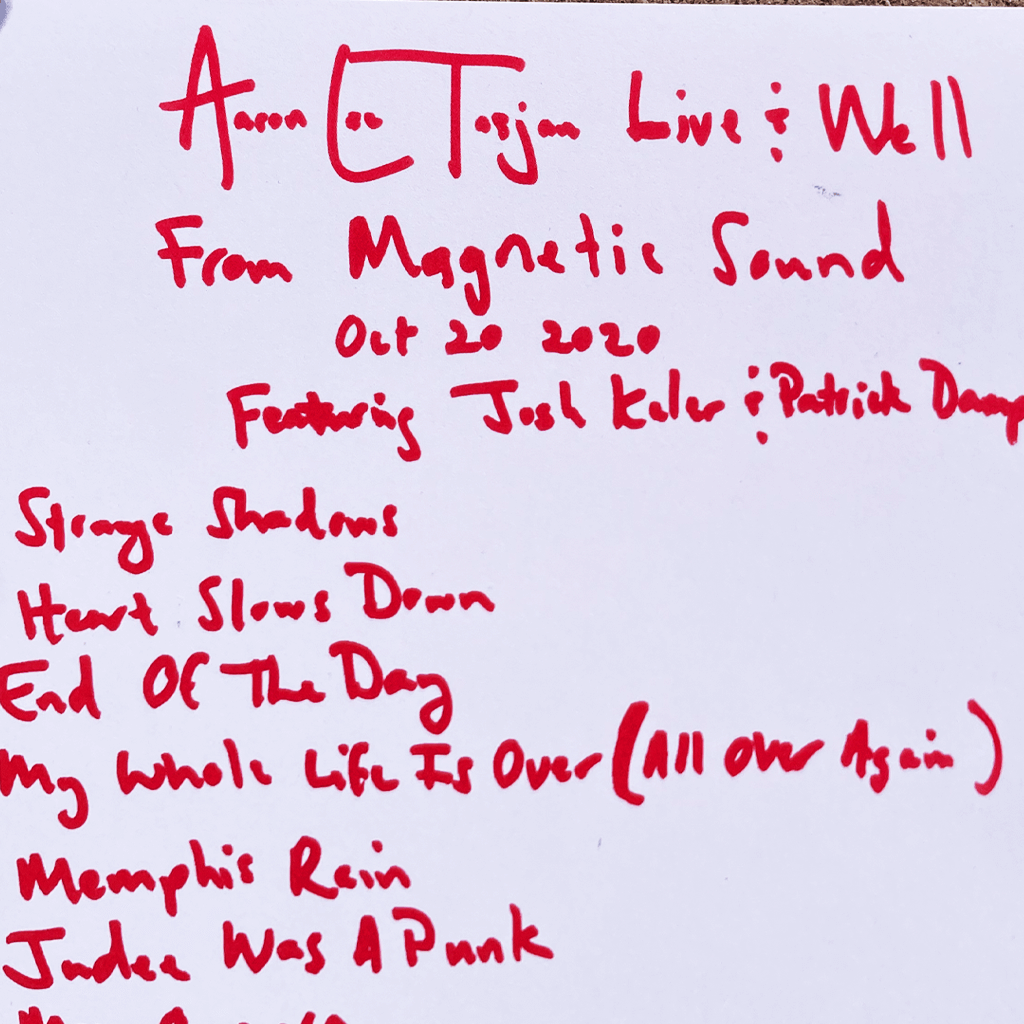 Aaron Lee Tasjan Live & Well
From Magnetic Sound
Oct 20 2020
Featuring Josh Kaler & Patrick Damp
Strange Shadows
Heart Slows Down
End Of The Day
My Whole Life Is Over (All Over Again)
Memphis Rain
Judee Was A Punk